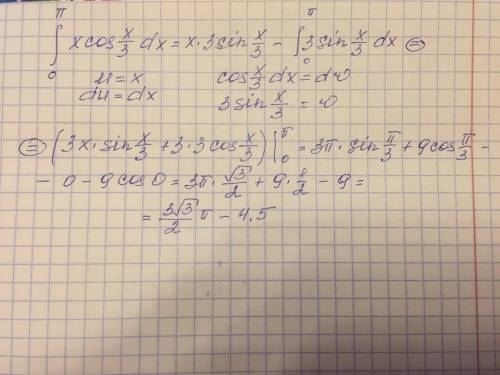 ∫₀^π x cos x/3 dx = x · 3 sin x/3 − ∫₀^π 3 sin x/3 dx ⊜
u = x cos x/3 dx = dv
du = dx 3 sin x/3 = v
⊜ (3x · sin x/3 + 3 · 3 cos x/3) |₀^π = 3π · sin π/3 + 9 cos π/3 −
− 0 − 9 cos 0 = 3π · √3/2 + 9 · 1/2 − 9 =
= 3√3/2 π − 4.5